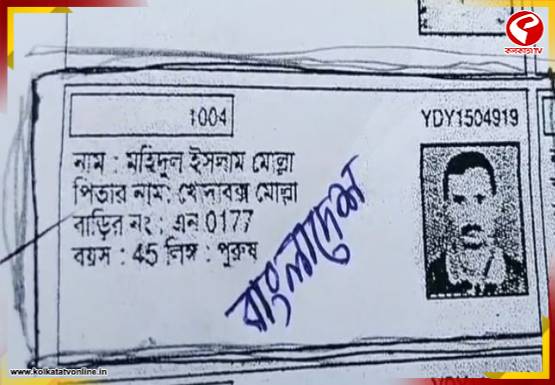 কলকাতা TV
1004
YDY1504919
নাম : মহিদুল ইসলাম মোল্লা
পিতার নাম: খোদাবক্স মোল্লা
বাড়ির নং : এন 0177
বয়স : 45 লিঙ্গ : পুরুষ
বাংলাদেশ
www.kolkatatvonline.in